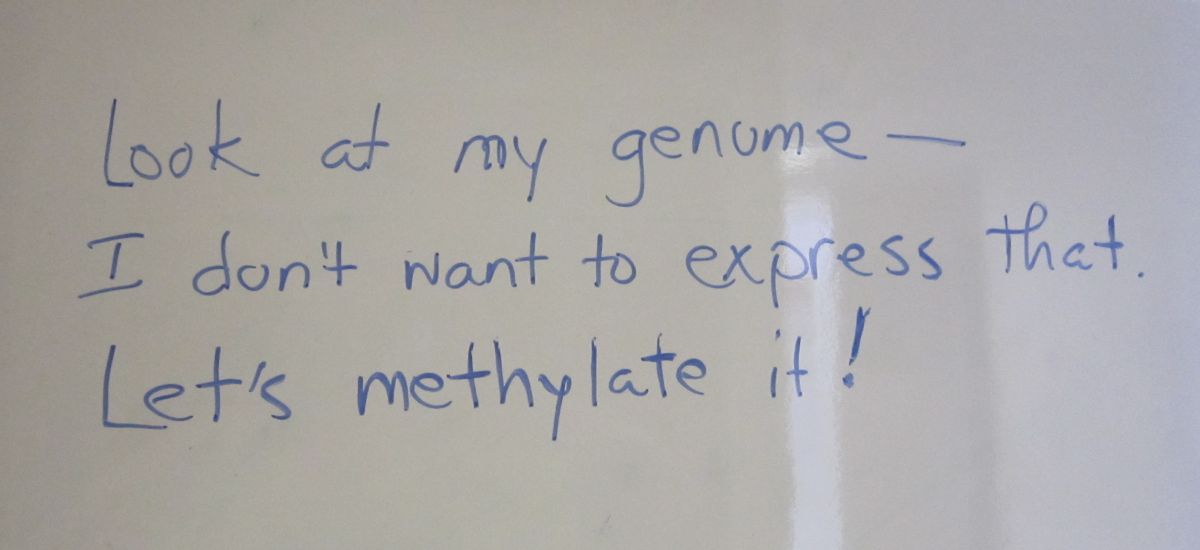 Look at my genome —
I don't want to express that.
Let's methylate it!